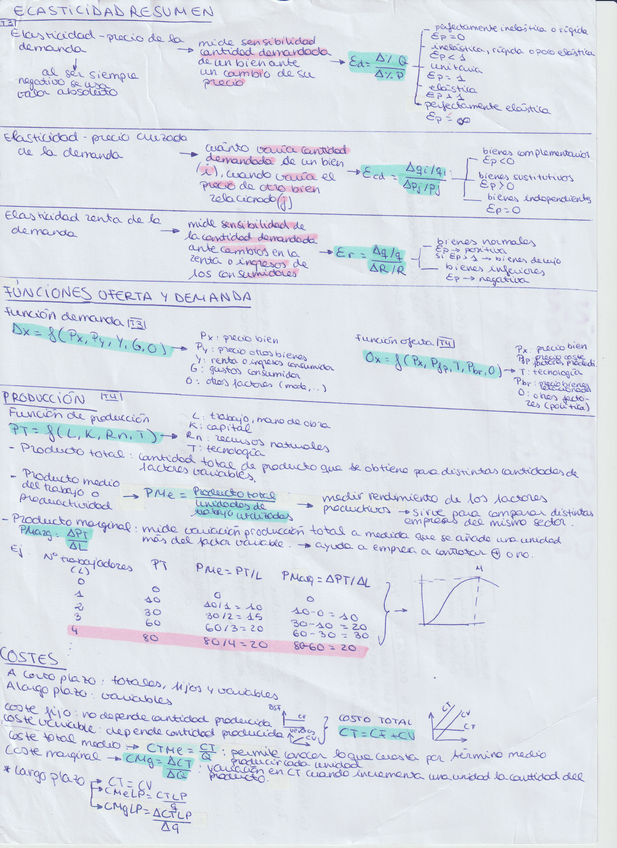 ELASTICIDAD RESUMEN
T3
Elasticidad-precio de la demanda → mide sensibilidad cantidad demandada de un bien ante un cambio de su precio → Ed = Δ% Q / Δ% P
al ser siempre negativo se usa valor absoluto
perfectamente inelástica o rígida
Ep = 0
inelástica, rígida o poco elástica
Ep < 1
unitaria
Ep = 1
elástica
perfectamente elástica
Ep = ∞
Elasticidad-precio cruzada de la demanda → cuánto varía cantidad demandada de un bien (i), cuando varía el precio de otro bien relacionado (j) → Ecd = Δqi/qi / Δpj/pj
bienes complementarios
Ep < 0
bienes sustitutivos
Ep > 0
bienes independientes
Ep = 0
Elasticidad renta de la demanda → mide sensibilidad de la cantidad demandada ante cambios en la renta o ingresos de los consumidores → Er = Δq/q / ΔR/R
bienes normales
Ep → positiva
si Ep > 1 → bienes de lujo
bienes inferiores
Ep → negativa
FUNCIONES OFERTA Y DEMANDA
Función demanda T3
Dx = f(Px, Py, Y, G, O)
Px: precio bien
Py: precio otros bienes
Y: renta o ingresos consumidor
G: gustos consumidor
O: otros factores (moda,...)
Función oferta T4
Ox = f(Px, Pfp, T, Pbr, O)
Px: precio bien
Pfp: precio coste factores product.
T: tecnología
Pbr: precio bienes relacionados
O: otros factores (política)
PRODUCCIÓN T4
Función de producción
PT = f(L, K, Rn, T)
L: trabajo, mano de obra
K: capital
Rn: recursos naturales
T: tecnología
- Producto total: cantidad total de producto que se obtiene para distintas cantidades de factores variables.
- Producto medio del trabajo o productividad → PMe = Producto total / unidades de trabajo utilizadas → medir rendimiento de los factores productivos → sirve para comparar distintas empresas del mismo sector.
- Producto marginal: mide variación producción total a medida que se añade una unidad más del factor variable. → ayuda a empresa a contratar + o no.
PMarg = ΔPT / ΔL
Ej: Nº trabajadores (L) PT PMe = PT/L PMag = ΔPT/ΔL
0 0 0 0
1 10 10/1 = 10 10-0 = 10
2 30 30/2 = 15 30-10 = 20
3 60 60/3 = 20 60-30 = 30
4 80 80/4 = 20 80-60 = 20
M
COSTES
A corto plazo: totales, fijos y variables
A largo plazo: variables
Coste fijo: no depende cantidad producida
Coste variable: depende cantidad producida
CV
COSTO TOTAL
CT = CF + CV
CT
CV
Coste total medio → CTMe = CT / Q : permite conocer lo que cuesta por término medio producir cada unidad
Coste marginal → CMg = ΔCT / ΔQ : variación en CT cuando incrementa una unidad la cantidad del producto.
* Largo plazo → CT = CV
→ CMeLP = CTLP / q
→ CMgLP = ΔCTLP / Δq